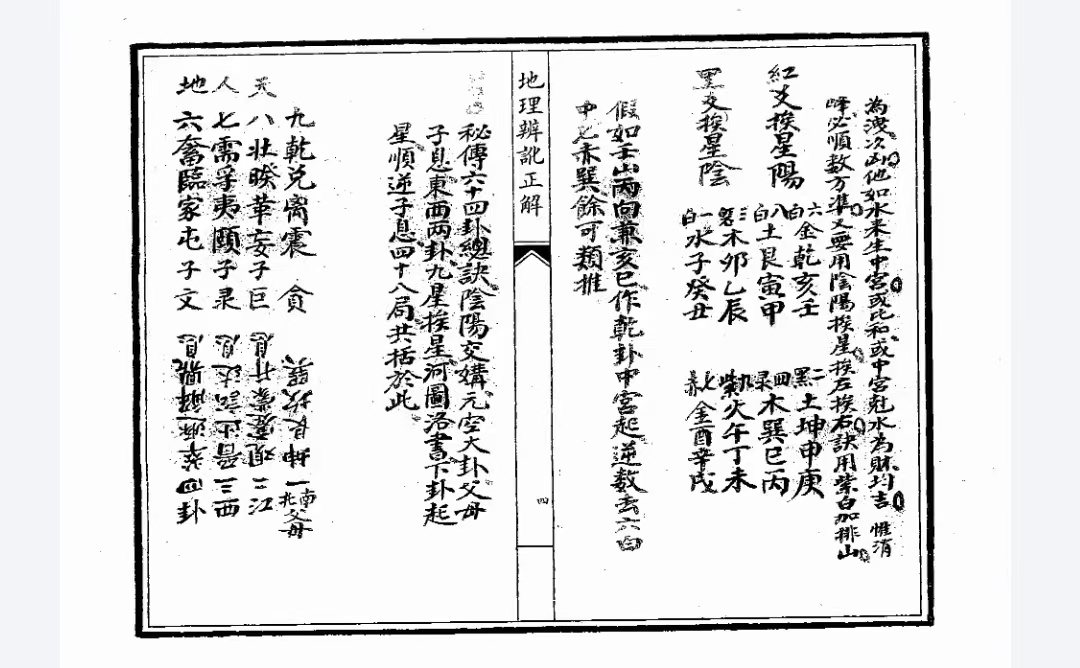 為洩次凶他如水來生中宮或比和或中宮尅水為財均吉 惟消
峰必順數方準又要用陰陽挨星挨左挨右訣用紫白加排山
紅爻挨星陽 六白金乾亥壬 二黑土坤申庚
八白土艮寅甲 四彔木巽巳丙
黑爻挨星陰 三碧木卯乙辰 九紫火午丁未
一白水子癸丑 七赤金酉辛戌
假如壬山丙向兼亥巳作乾卦中宮起逆數去六白
中七赤巽餘可類推
地理辨訛正解
四
秘傳六十四卦總訣陰陽交媾元空大卦父母
子息東西兩卦九星挨星河圖洛書下卦起
星順逆子息四十八局共括於此
九乾兌离震 貪 巽坎艮坤 一南北父母
天 八壯睽革妄子巨 息升蒙蹇观 二江
人 七需孚夷頤子彔 息訟晋 三西
地 六畜臨家屯子文 息鼎解遯萃 四卦